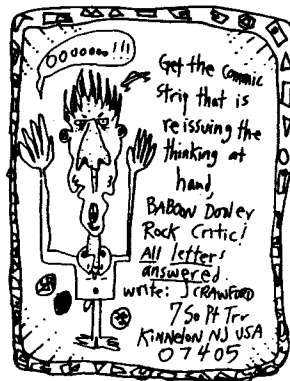 OOOOOOO!!!
Get the Commic
Strip that is
reissuing the
thinking at
hand,
BABOON Dooley
Rock Critic!
All letters
answered
write: JCRAWFORD
7 So Pt Trr
Kinnelon NJ USA
07405